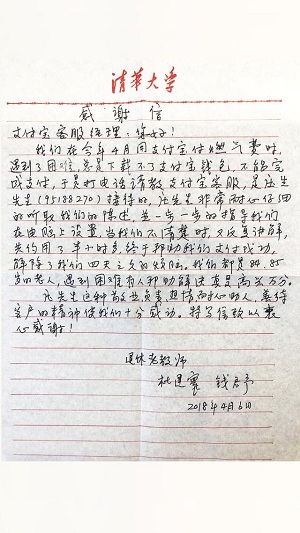 清华大学
感谢信
支付宝客服经理：您好！
我们在今年4月用支付宝付燃气费时，
遇到了困难，总是下载不了支付宝钱包，不能完
成支付，于是打电话请教支付宝客服，是庄生
先生（95188270）接待的，庄生是非常耐心仔细
的听取我们的陈述，并一步一步的指导我们
在电脑上设置，当我们不清楚时，又反复讲解，
共约用了半小时多，终于帮助我们支付成功，
解除了我们四天之久的烦恼，我们都是84、85
岁的老人，遇到困难有人帮助解决真是高兴万分。
庄先生这种敬业负责，热情而耐心助人，善待
客户的精神使我们十分感动。特写信致以衷
心感谢！
退休老教师
杜建寰 钱君予
2018年4月6日